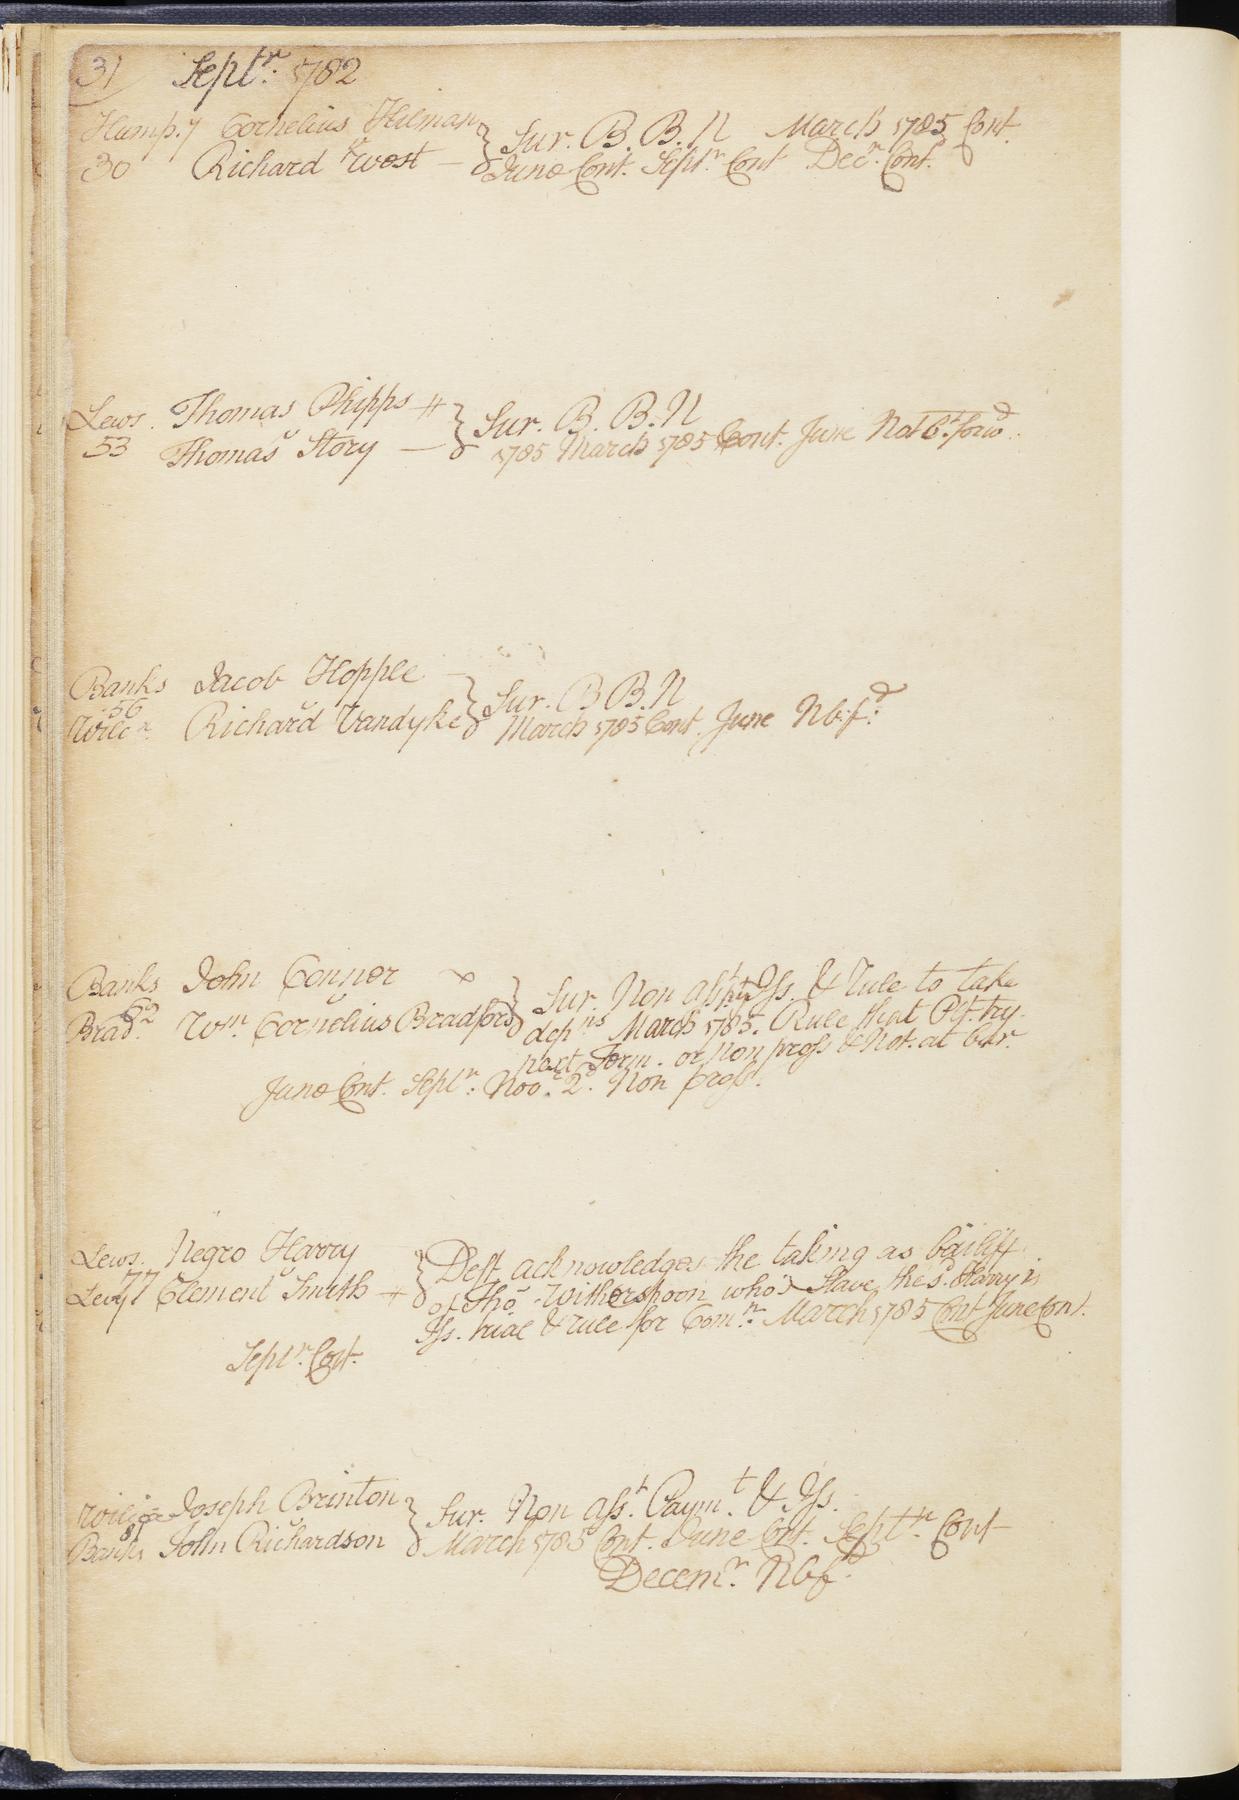 31 Septr. 1782
Hump.y Cornelius Hilman } Sur. B. B. N March 1785 Cont.
30 Richard West — June Cont. Septr. Cont Decr. Cont.
Lews. Thomas Phipps # } Sur. B. B. N
53 Thomas Story — 1785 March 1785 Cont. June Not bt. forwd.
Banks Jacob Hopple — } Sur. B B. N
56
Wilcn. Richard Vandyke March 1785 Cont. June Nbfd.
Banks John Connor } Sur. Non asst. Iss. & rule to take
62
Brad. Wm. Cornelius Bradford depns March 1785. Rule that Plf. try
next Term. or non pross & Not. at bar.
June Cont. Septr. Nov. 2d. Non pross.
Lews. Negro Harry } Deft acknowledges the taking as bailiff
77
Levy Clement Smith of Tho. Witherspoon who's Slave the sd. Harry is
Iss. trial & rule for Comn. March 1785 Cont June Cont.
Septr. Cont.
Joseph Brinton } Sur. Non asst. Paymt. & Iss.
81
Banks John Richardson March 1785 Cont. June Cont. Septr. Cont
Decemr. Nbfd.